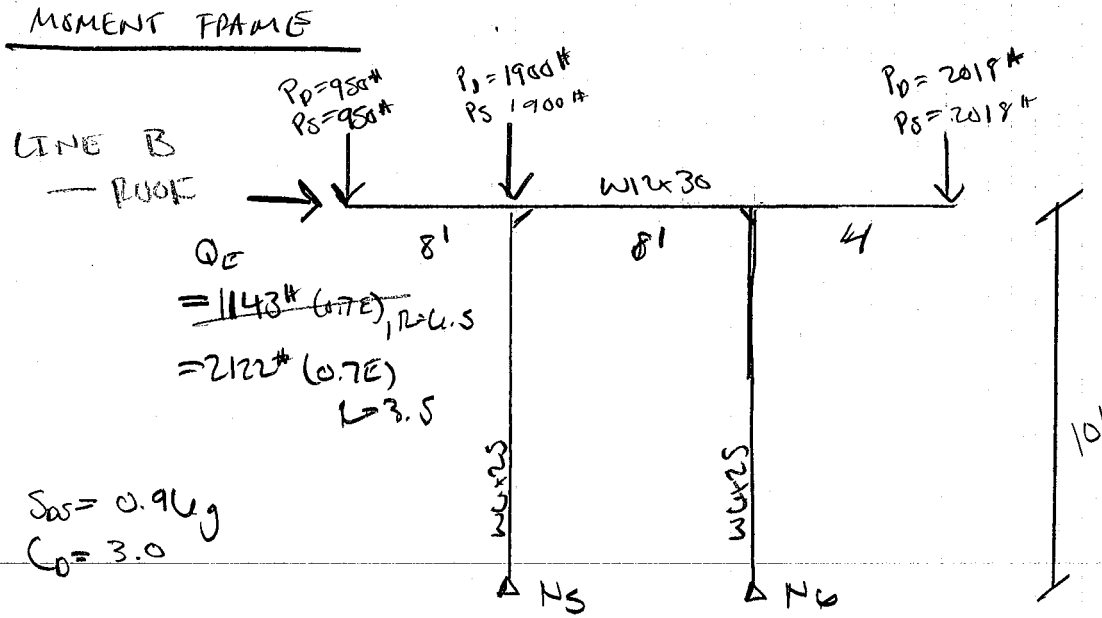 MOMENT FRAME
PD=950#
PS=950#
PD=1900#
PS 1900#
PD=2018#
PS=2018#
LINE B
— ROOF
W12x30
8'
8'
4
QE
=1143# (0.7E), R=6.5
=2122# (0.7E)
R=3.5
W6x25
W6x25
10'
SDS= 0.96g
CD= 3.0
N5
N6